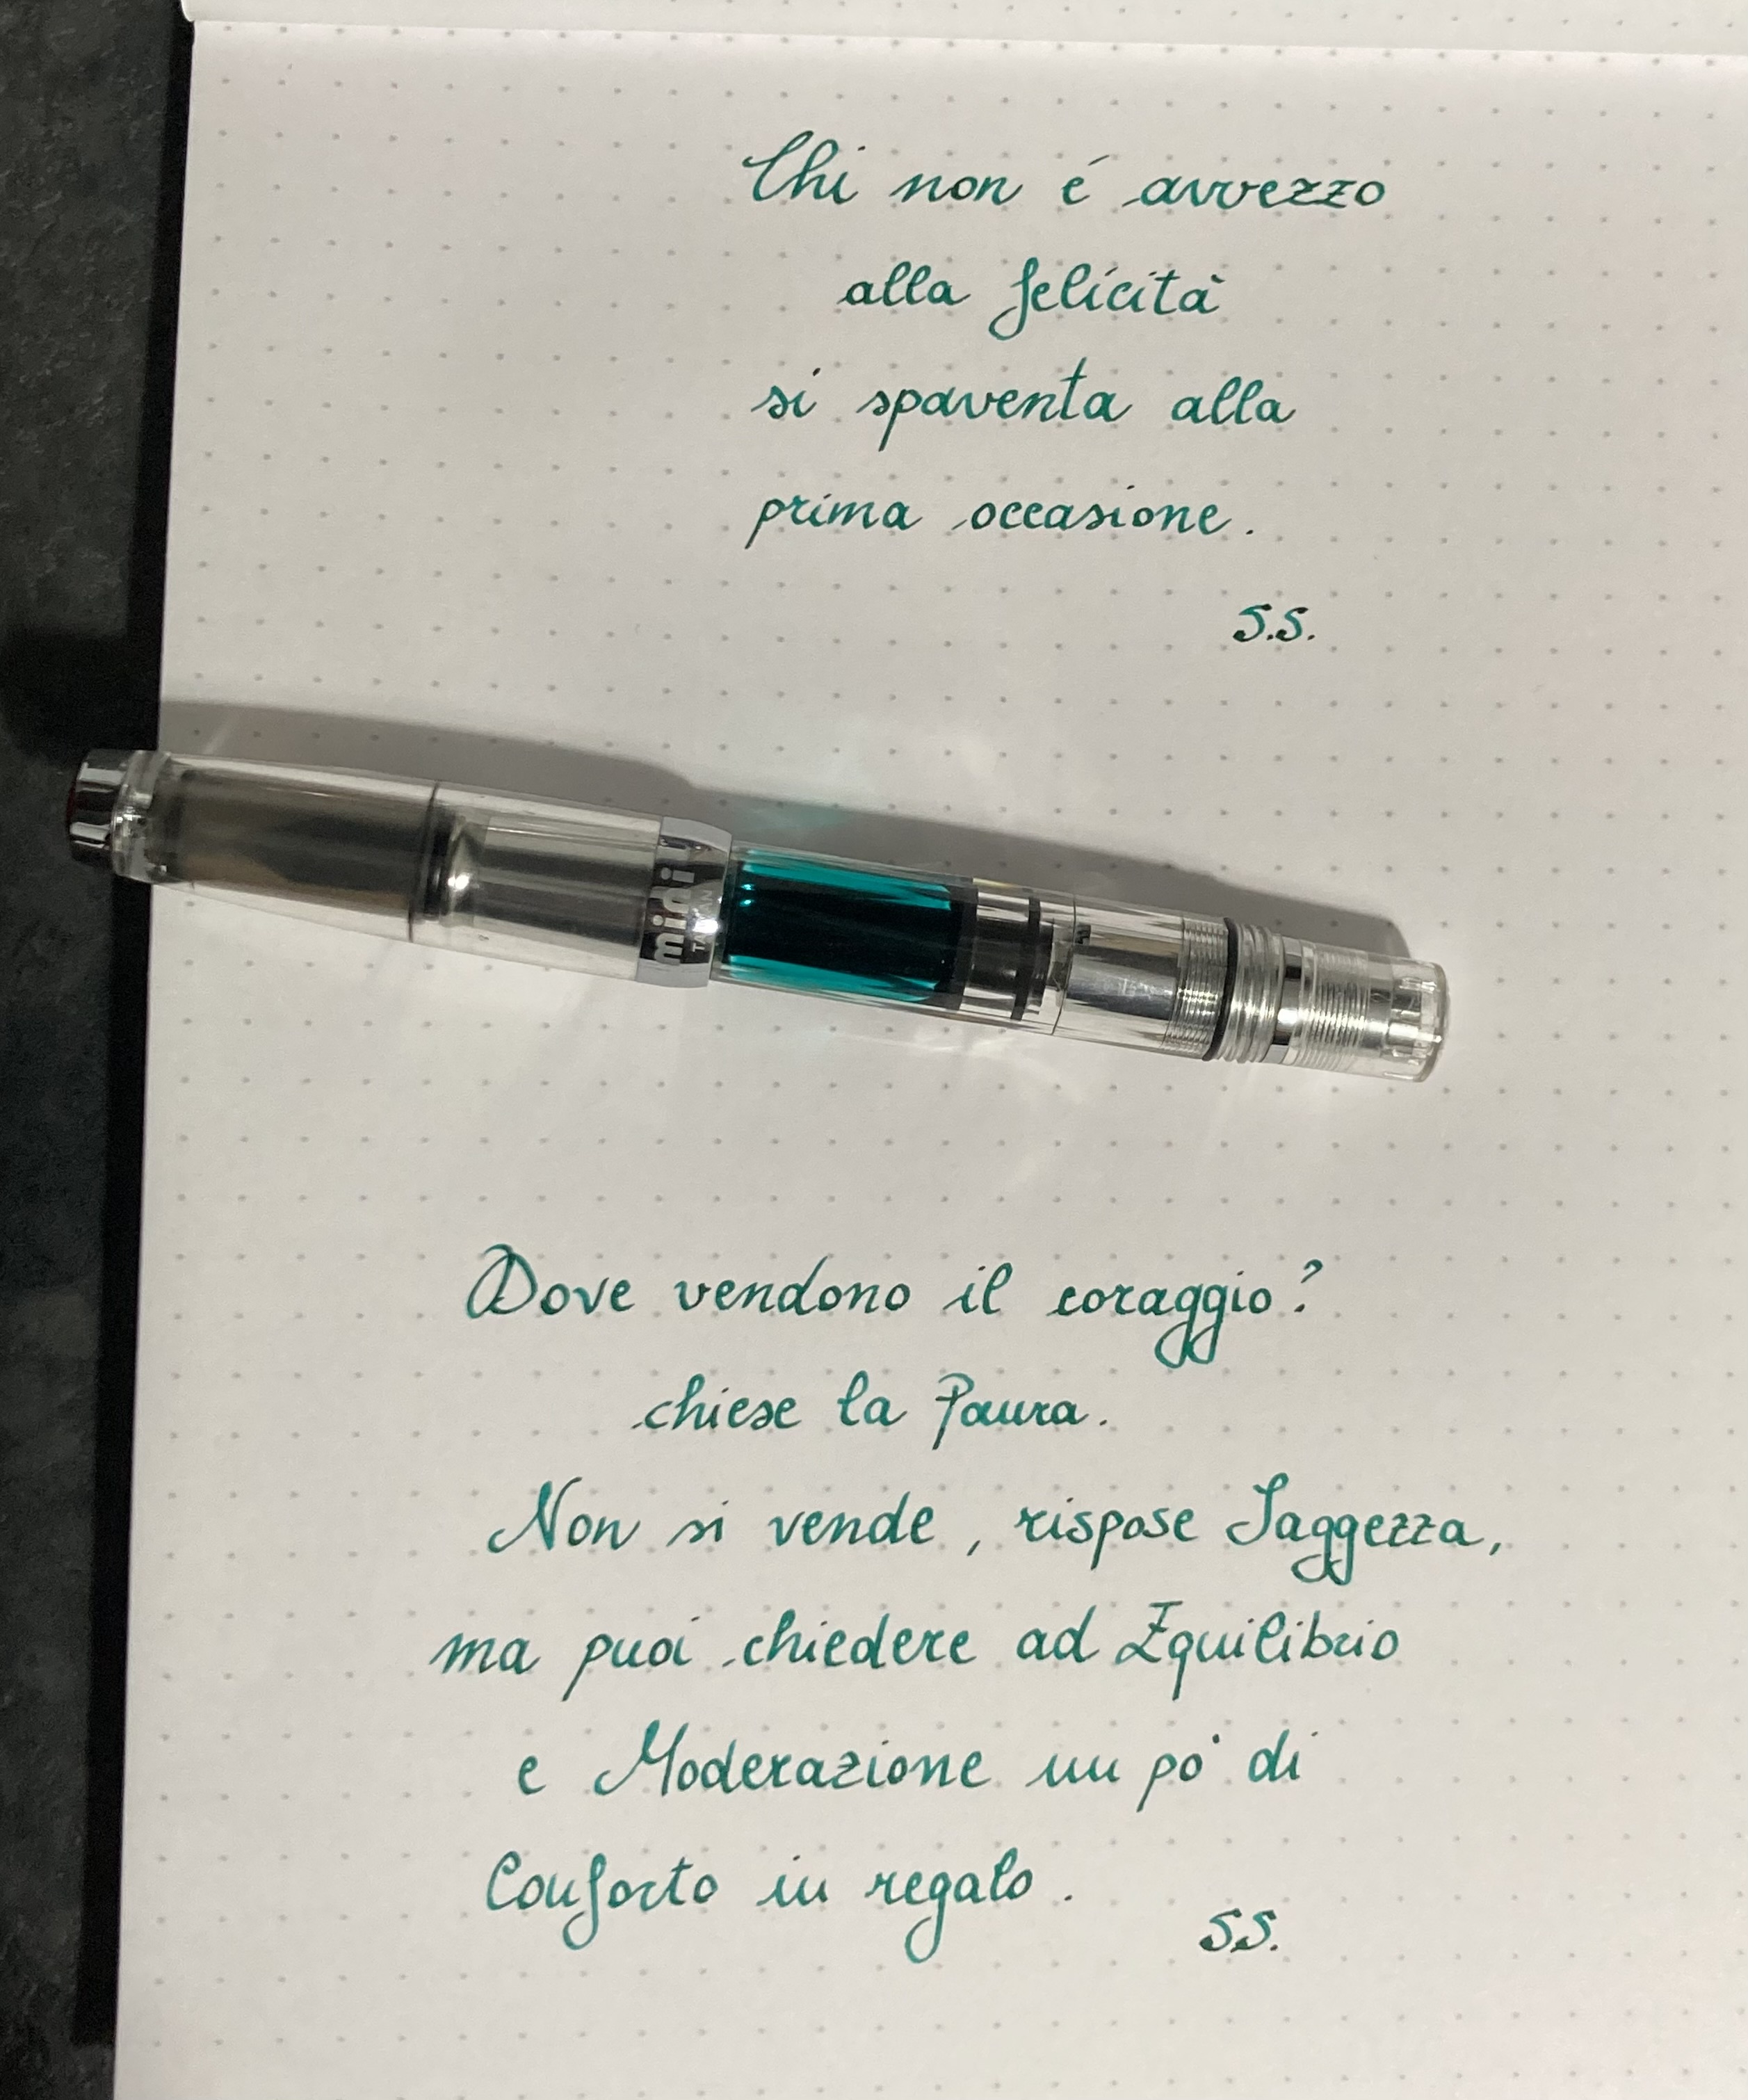 Chi non é avvezzo
alla felicità
si spaventa alla
prima occasione.
S.S.
mini
TAIWAN
Dove vendono il coraggio?
chiese la Paura.
Non si vende, rispose Saggezza,
ma puoi chiedere ad Equilibrio
e Moderazione un pò di
Conforto in regalo.
S.S.